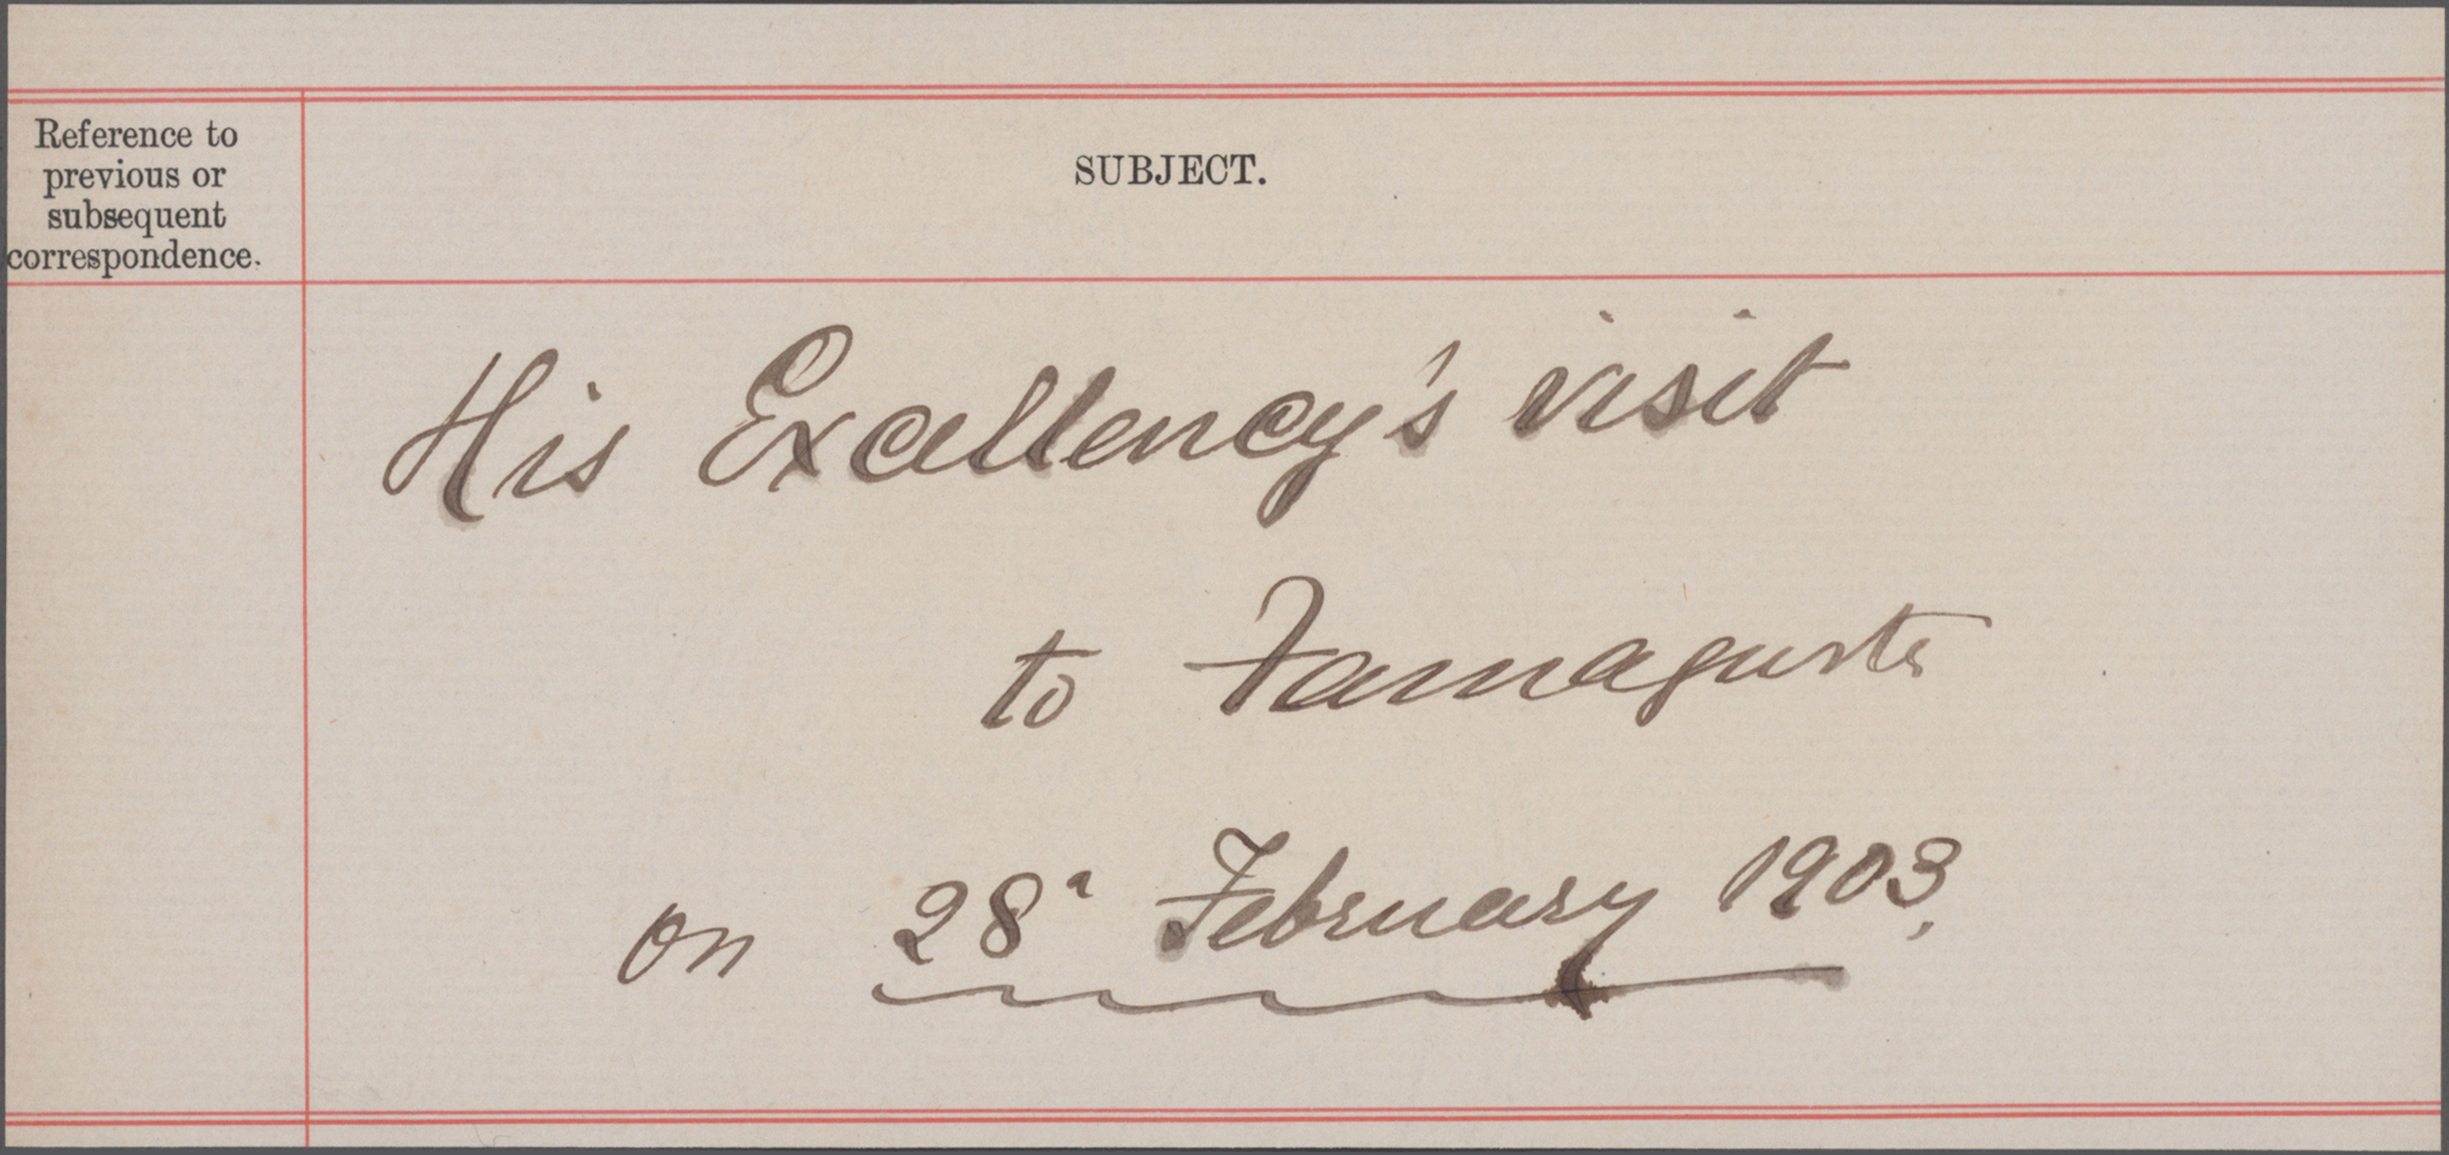 Reference to
previous or
subsequent
correspondence.
SUBJECT.
His Excellency's visit
to Famagusta
on 28" February 1903.